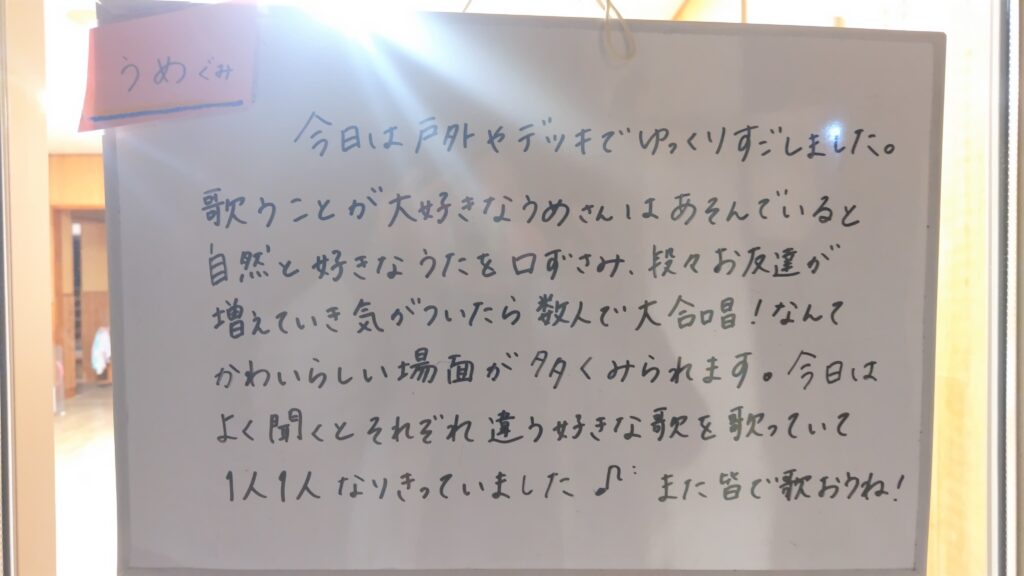 うめぐみ
今日は戸外やデッキでゆっくりすごしました。
歌うことが大好きなうめさんはあそんでいると
自然と好きなうたを口ずさみ、段々お友達が
増えていき気がついたら数人で大合唱!なんて
かわいらしい場面が多くみられます。今日は
よく聞くとそれぞれ違う好きな歌を歌っていて
1人1人なりきっていました♪ また皆で歌おうね!